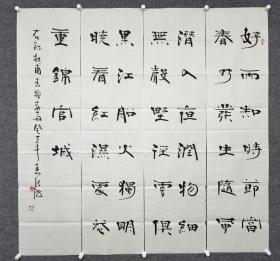 好雨知時節當
春乃發生隨風
潛入夜潤物細
無聲野徑雲俱
黑江船火獨明
曉看紅濕處花
重錦官城
右錄杜甫春夜喜雨